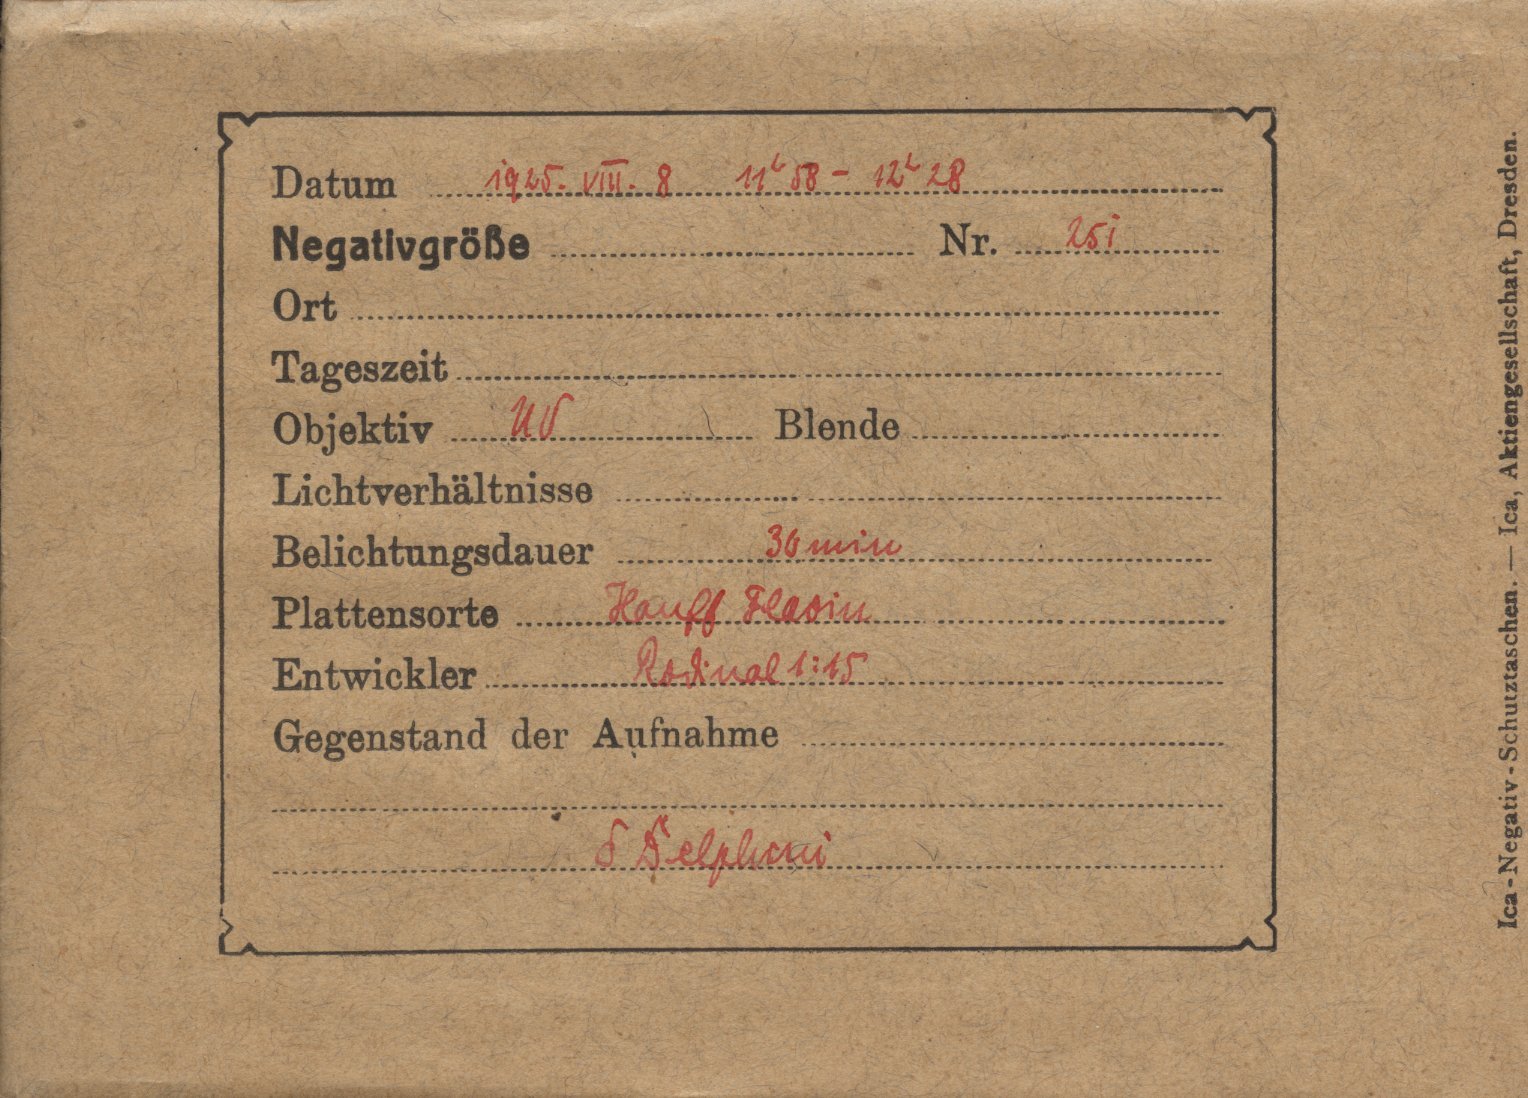 Datum 1925. VIII. 8 11h 58 - 12h 28
Negativgröße Nr. 251
Ort
Tageszeit
Objektiv UV Blende
Lichtverhältnisse
Belichtungsdauer 30 min
Plattensorte Hauff Flavin
Entwickler Rodinal 1:15
Gegenstand der Aufnahme
δ Delphini
Ica-Negativ-Schutztaschen. — Ica, Aktiengesellschaft, Dresden.